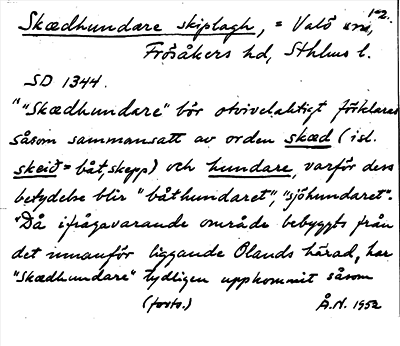 1-2.
Skædhundare skiplagh, = Valö sn,
Frösåkers hd, Sthlms l.
SD 1344.
""Skædhundare" bör otvivelaktigt förklaras
såsom sammansatt av orden skæd (isl.
skeið = båt, skepp) och hundare, varför dess
betydelse blir "båthundaret", "sjöhundaret".
"Då ifrågavarande område bebyggts från
det innanför liggande Olands härad, har
"Skædhundare" tydligen uppkommit såsom
(forts.) Å.N. 1952